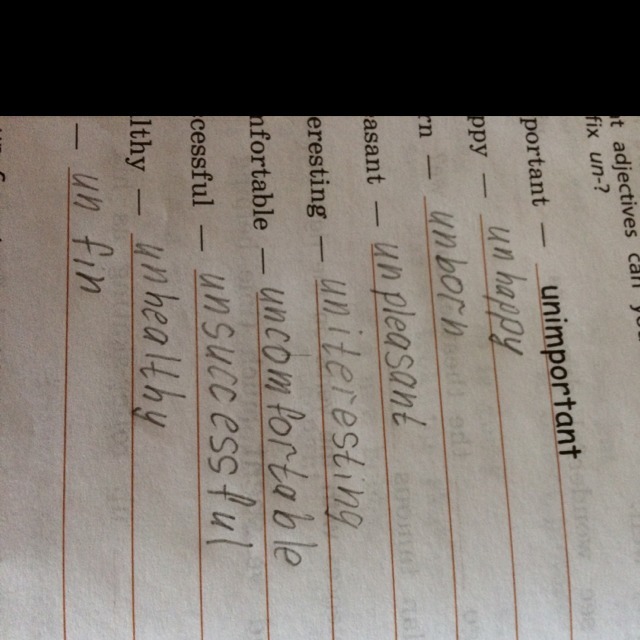 t adjectives can yo
fix un-?
portant — unimportant
ppy — unhappy
rn — unborn
asant — unpleasant
eresting — uniteresting
nfortable — uncomfortable
cessful — unsuccessful
lthy — unhealthy
— unfin